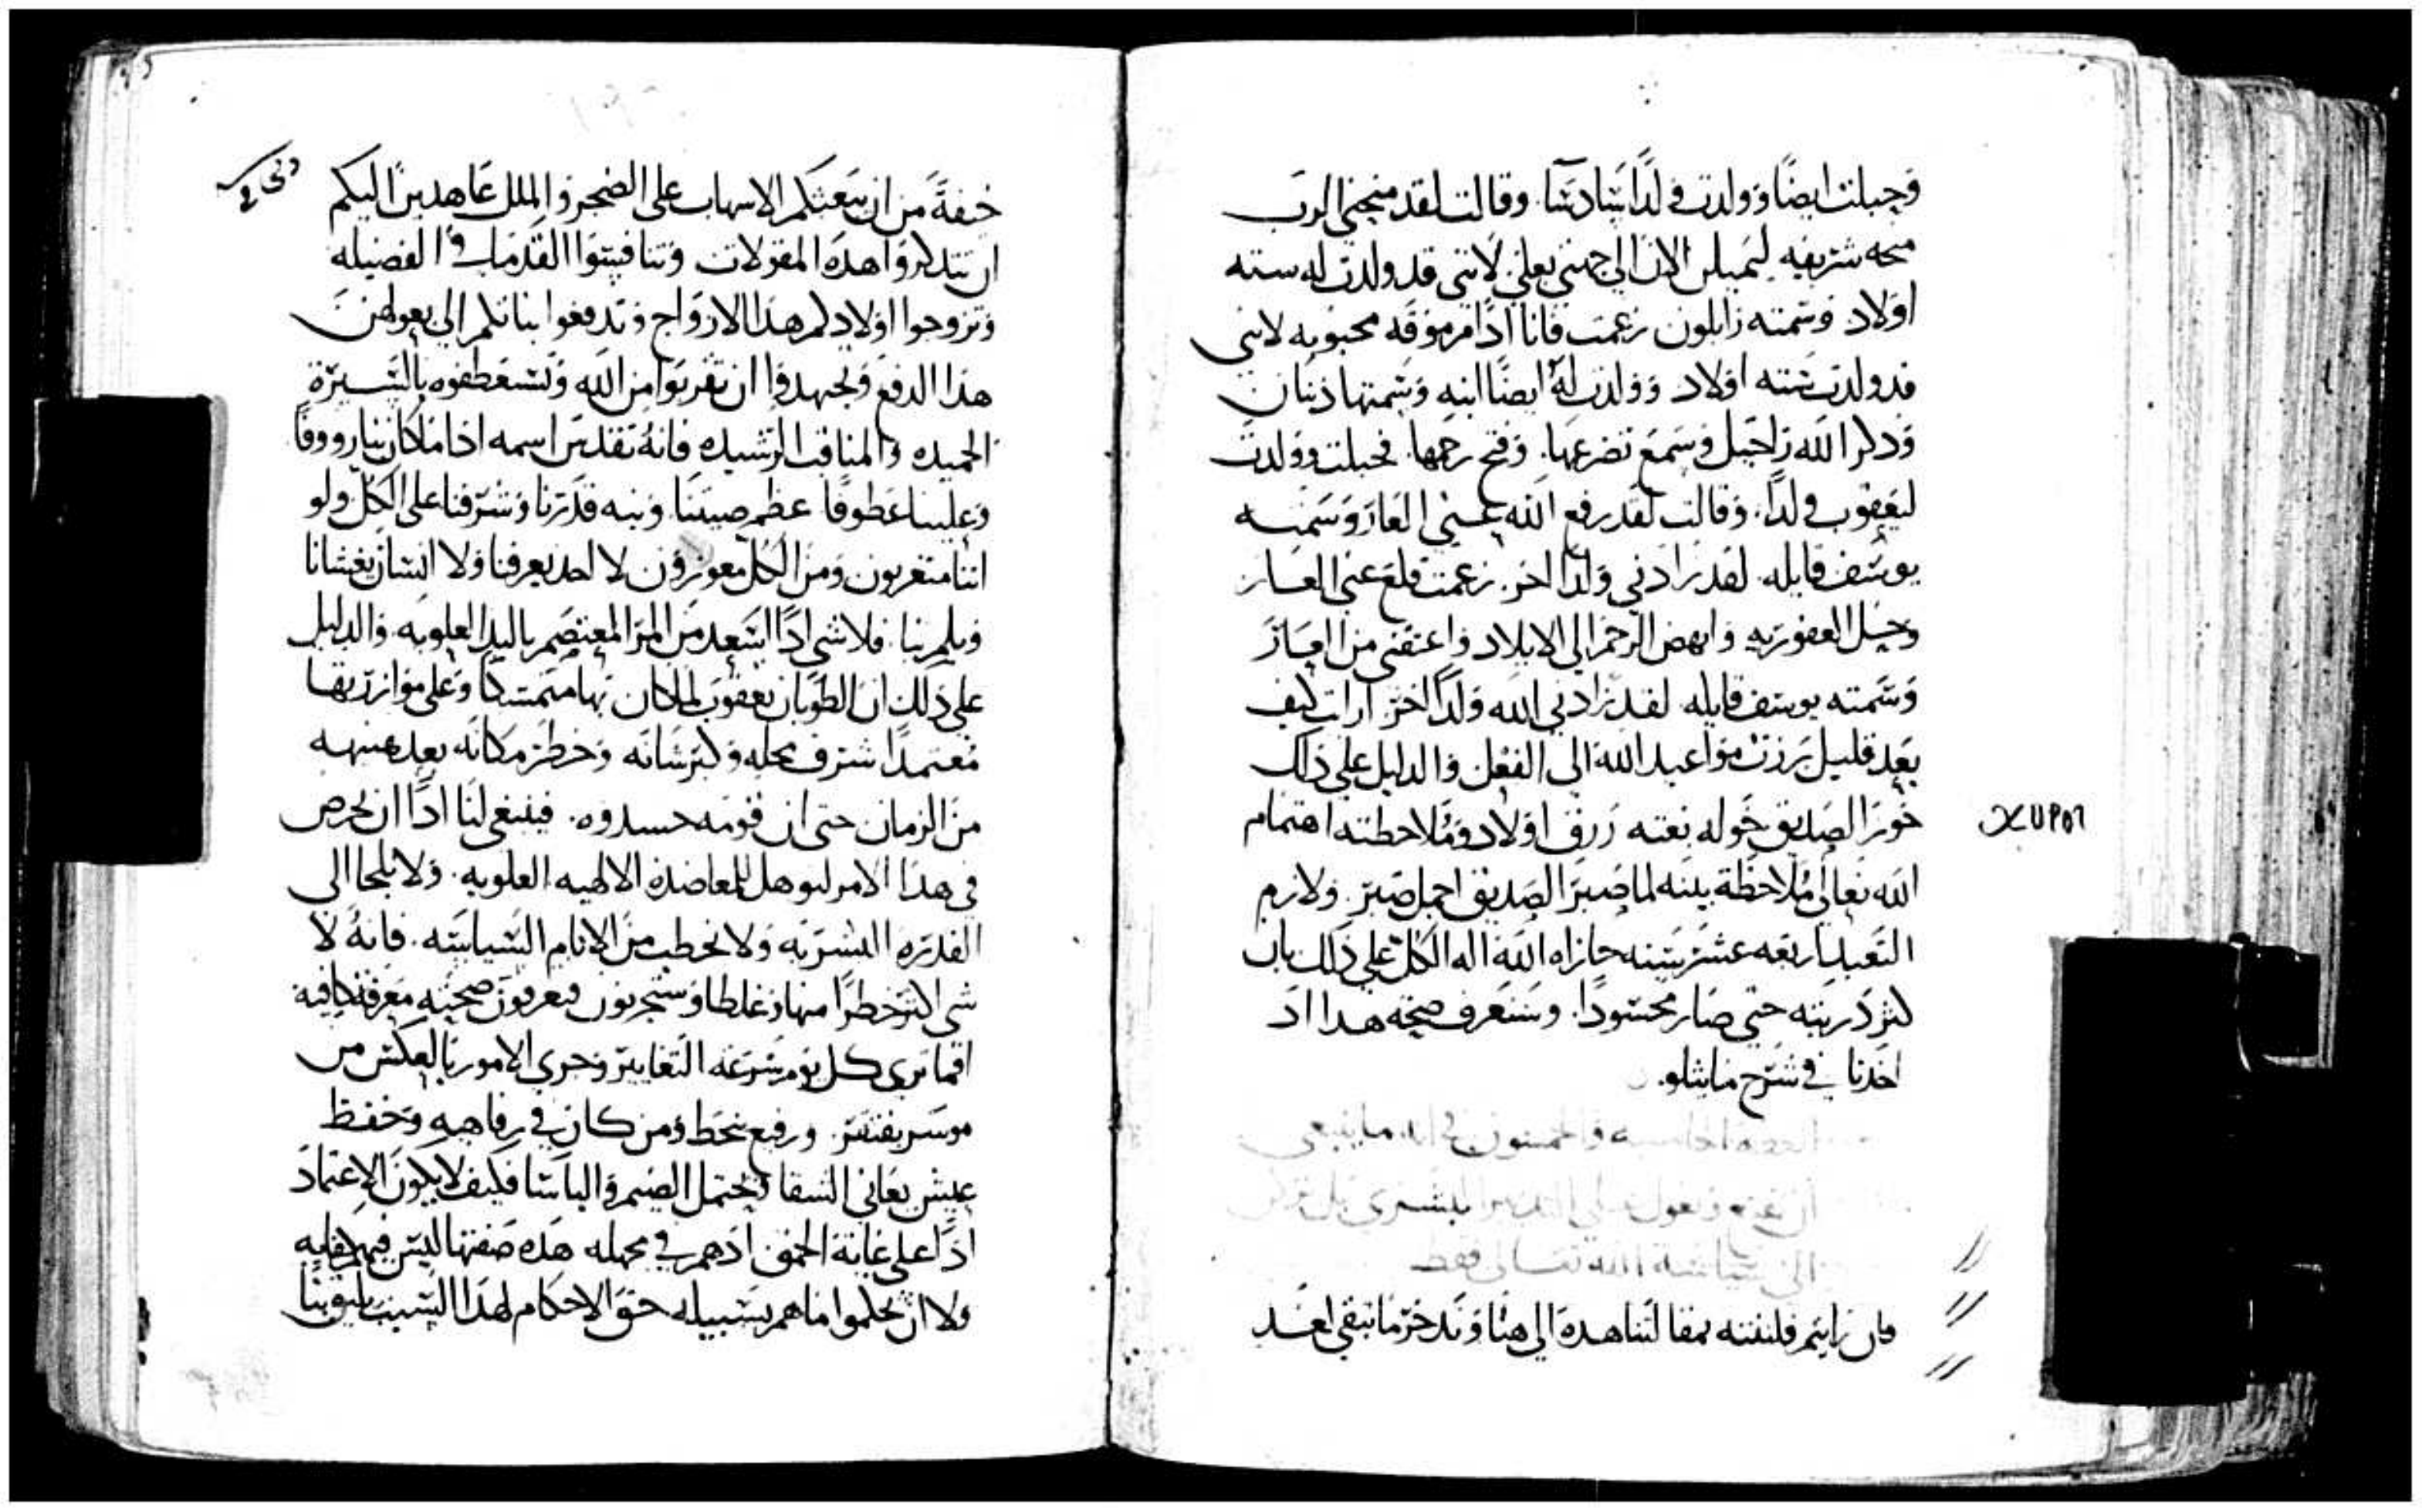 وحبلت ايضًا وولدت ولدًا سادسًا. وقالت لقد منحني الرب
منحه شريفه ليميلن الان الي جهتي بعلي لانني قد ولدت له سته
اولاد وسمته زابلون زعمت فانا اذًا مرموقه محبوبه لانني
قد ولدت سته اولاد وولدت له ايضًا ابنه وسمتها دينا
وذكر الله راحيل وسمع تضرعها. وفتح رحمها. فحبلت وولدت
ليعقوب ولدًا. وقالت لقد رفع الله عني العار وسمته
يوسف قايله. لقد زادني ولدًا اخر. زعمت قلع عني العار
وحل العقوريه وانهض الرحم الي الايلاد واعتقني من العار
وسمته يوسف قايله. لقد زادني الله ولدًا اخر. ارايت كيف
بعد قليل برزت مواعيد الله الي الفعل والدليل علي ذلك
الصديق خوله رزق اولاد وملاحظته اهتمام
الله تعالي ملاحظة بينه لما صبر الصديق اجمل صبر. ولازم
التعبد اربعه عشر سنه جازاه الله اله الكل علي ذلك بان
كثر ذريته حتي صار محسودًا. وسنعرف صحة هذا اذ
اخذنا في شرح ما يتلو.
العظه الخامسه والخمسون في انه ما ينبغي
ان
الي سياسة الله تعالي فقط
فان رايتم فلنفته بمقالتنا هذه الي هنا وندخر ما تبقي لغد
خيفةً من ان يبعثكم الاسهاب علي الضجر والملل عاهدين اليكم
ان تتذكروا هذه المقولات وتنافيسوا القدما في الفضيله
وتزوجوا اولادكم هذا الازواج وتدفعوا بناتكم الي بعولهن
هذا الدفع وتجهدوا ان تقربوا من الله وتستعطفوه بالسيرة
الحميده والمناقب الرشيده فانه تقدس اسمه اذا ما كان بنا رووفًا
وعلينا عطوفًا عظم صيتنا. ونبه قدرنا وشرفنا علي الكل ولو
اننا متغربون ومن الكل معوزون لا احد يعرفنا ولا انسان يغشانا
ويلم بنا. فلا شي اذًا اسعد من المر المعتصم باليد العلويه. والدليل
علي ذلك ان الطوبان يعقوب لما كان بها متمسكًا وعلي موازرتها
معتمدًا شرف محله وكبر شانه وخطر مكانه بعد هنيهه
من الزمان حتي ان قومه حسدوه. فينبغي لنا اذًا ان نحرص
في هذا الامر لنوهل للمعاضدة الالهيه العلويه. ولا نلجا الي
القدره البشريه ولا نخطب من الانام السياسه. فانه لا
شي اكثر خطرًا منها وغلطا وستجربون فتعرفون صحته معرفة كافيه
افما نري كل يوم سرعة التغايير وجري الامور بالعكس من
موسر يفتقر. ورفيع ينحط ومن كان في رفاهيه وخفظ
عيش يعاني الشقا ويحتمل الضيم والباسا فكيف لا يكون الاعتماد
اذًا علي غاية الحمق اذ هم في مهله هذه صفتها ليس فيهم
ولا ان يحلموا ما هم بسبيله حق الاحكام لهذا السبب